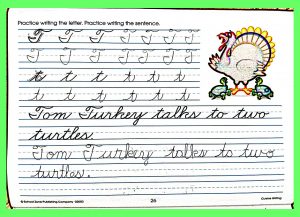 Practice writing the letter. Practice writing the sentence.
T T T T T T T
T T T T T T T
t t t t t t t
t t t t t t t
Tom Turkey talks to two
turtles.
Tom Turkey talks to two
turtles.
26
Cursive Writing